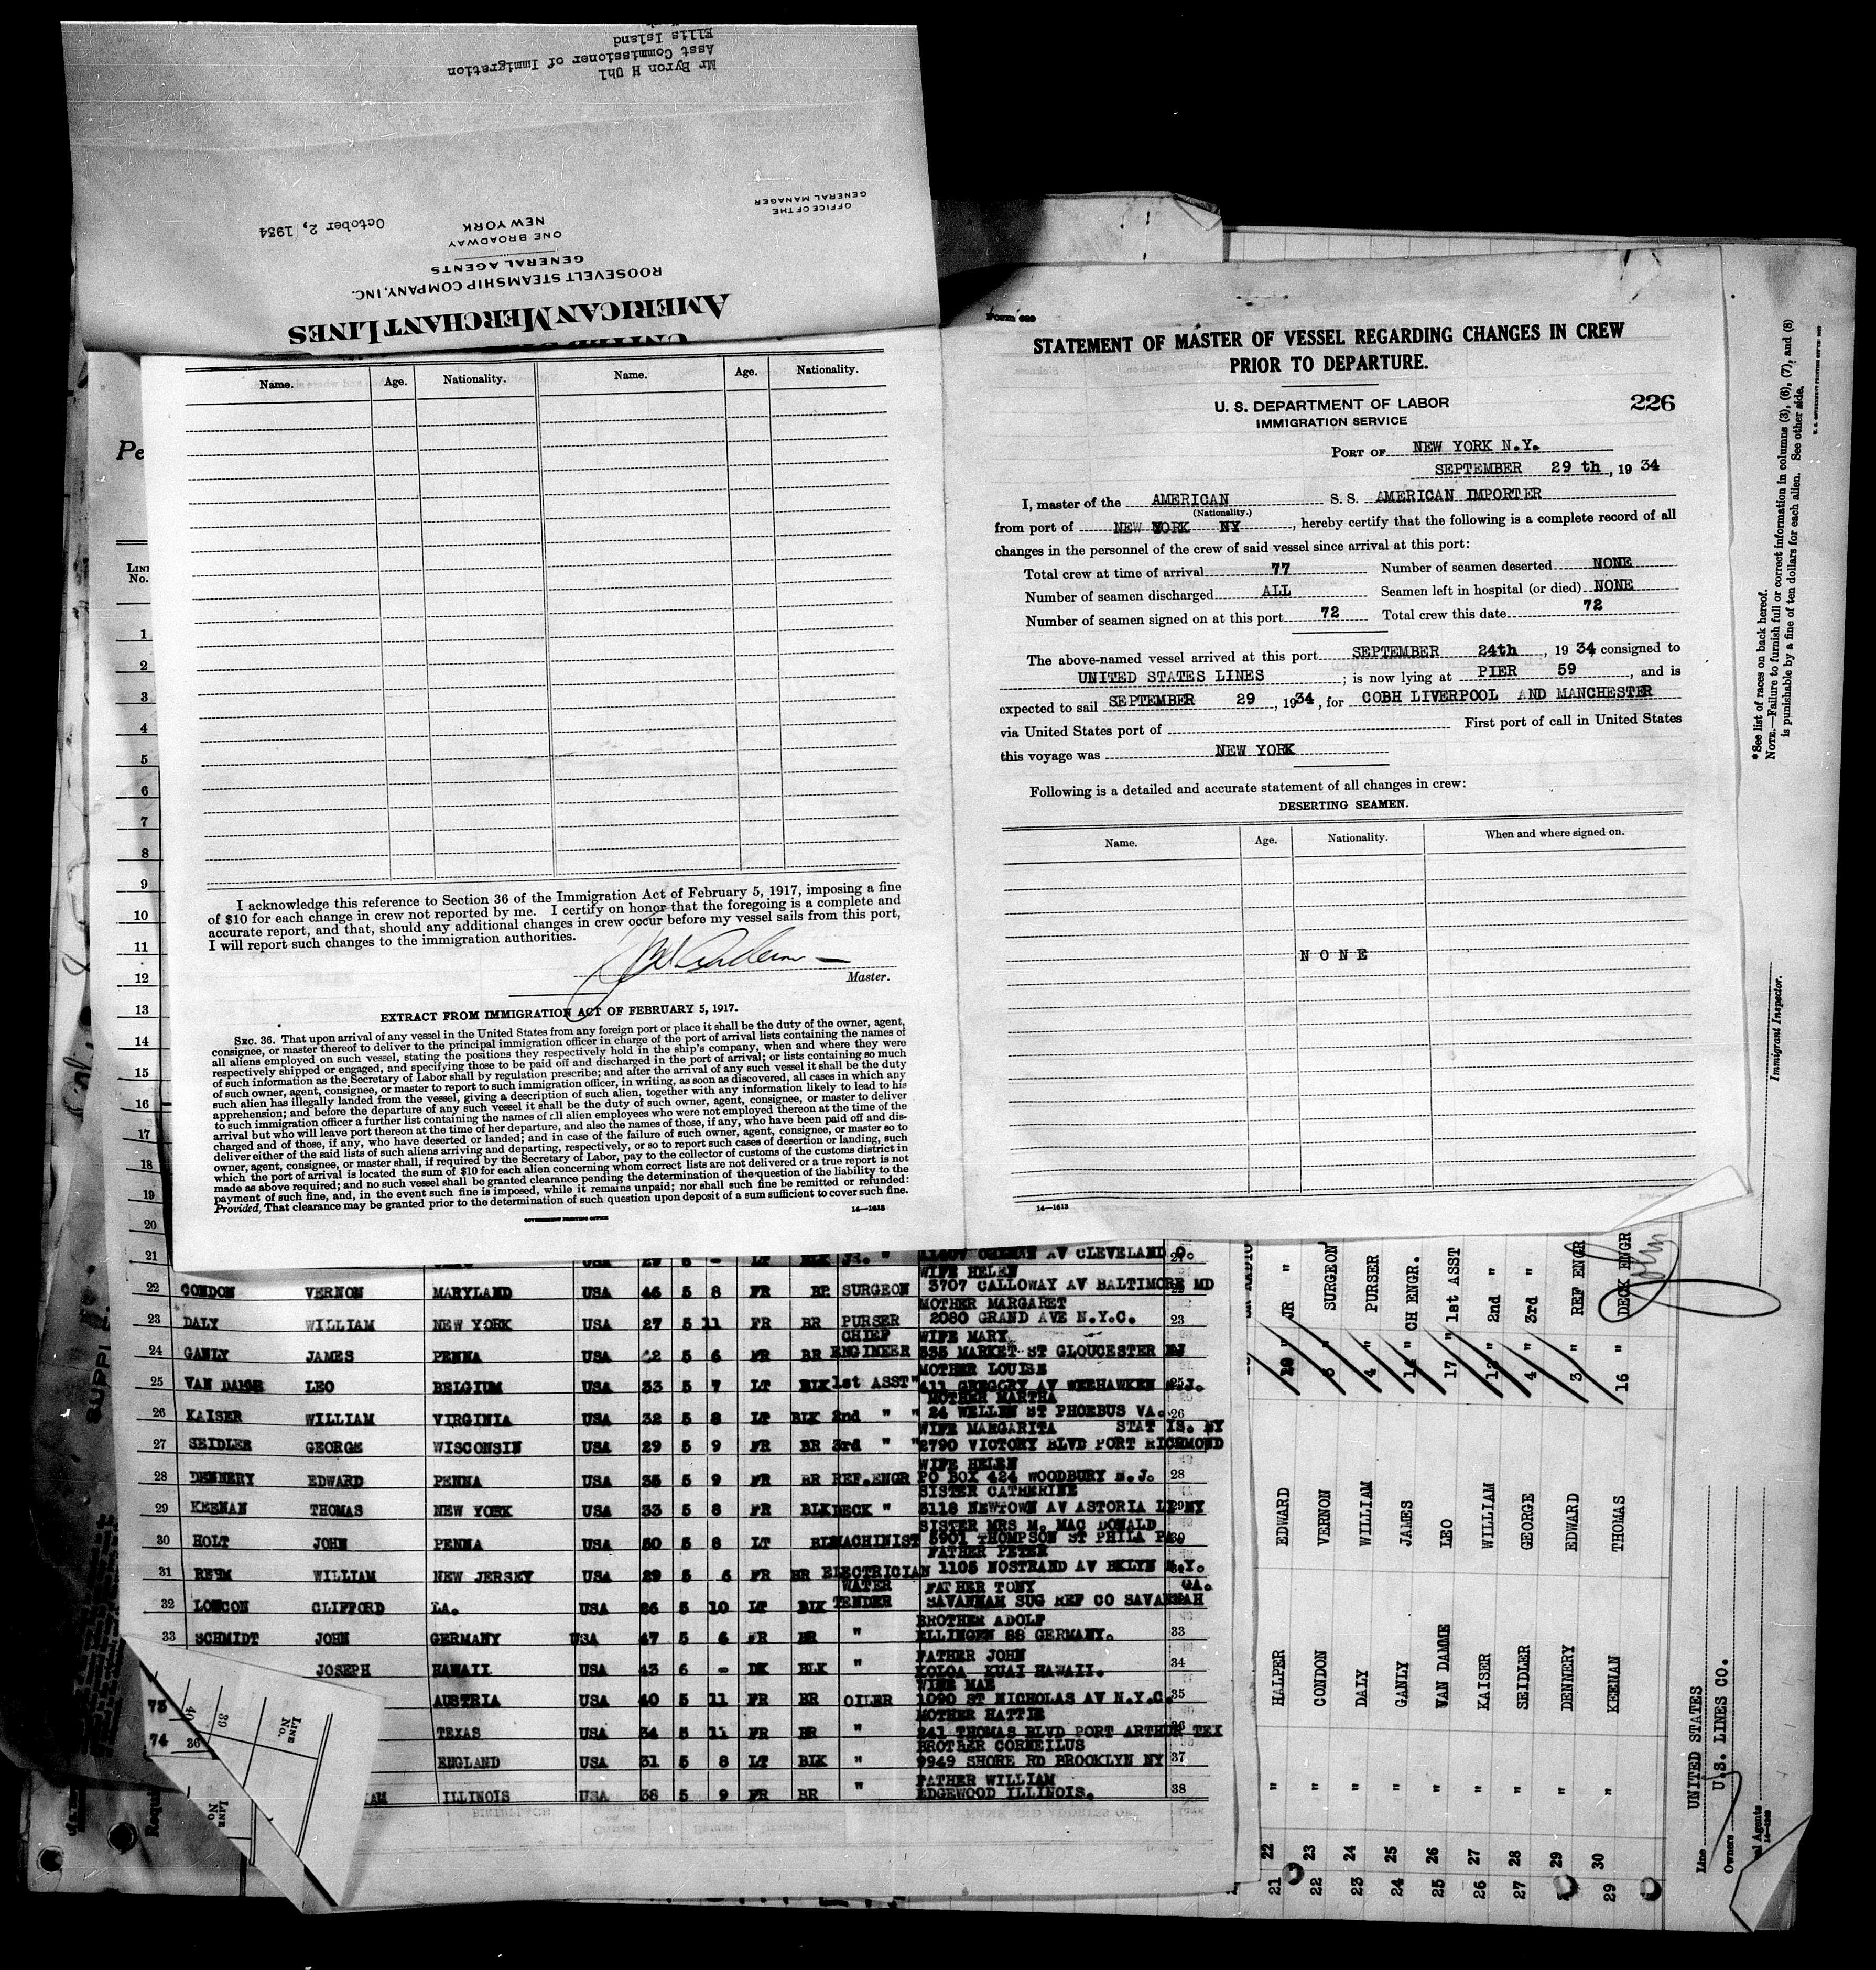 Mr Byron H Uhl
Asst Commissioner of Immigration
Ellis Island
OFFICE OF THE
GENERAL MANAGER
October 2, 1934
AMERICAN MERCHANT LINES
ROOSEVELT STEAMSHIP COMPANY, INC.
GENERAL AGENTS
ONE BROADWAY
NEW YORK
Name. Age. Nationality. Name. Age. Nationality.
I acknowledge this reference to Section 36 of the Immigration Act of February 5, 1917, imposing a fine
of $10 for each change in crew not reported by me. I certify on honor that the foregoing is a complete and
accurate report, and that, should any additional changes in crew occur before my vessel sails from this port,
I will report such changes to the immigration authorities.
Master.
EXTRACT FROM IMMIGRATION ACT OF FEBRUARY 5, 1917.
SEC. 36. That upon arrival of any vessel in the United States from any foreign port or place it shall be the duty of the owner, agent,
consignee, or master thereof to deliver to the principal immigration officer in charge of the port of arrival lists containing the names of
all aliens employed on such vessel, stating the positions they respectively hold in the ship's company, when and where they were
respectively shipped or engaged, and specifying those to be paid off and discharged in the port of arrival; or lists containing so much
of such information as the Secretary of Labor shall by regulation prescribe; and after the arrival of any such vessel it shall be the duty
of such owner, agent, consignee, or master to report to such immigration officer, in writing, as soon as discovered, all cases in which any
such alien has illegally landed from the vessel, giving a description of such alien, together with any information likely to lead to his
apprehension; and before the departure of any such vessel it shall be the duty of such owner, agent, consignee, or master to deliver
to such immigration officer a further list containing the names of all alien employees who were not employed thereon at the time of the
arrival but who will leave port thereon at the time of her departure, and also the names of those, if any, who have been paid off and dis-
charged and of those, if any, who have deserted or landed; and in case of the failure of such owner, agent, consignee, or master so to
deliver either of the said lists of such aliens arriving and departing, respectively, or so to report such cases of desertion or landing, such
owner, agent, consignee, or master shall, if required by the Secretary of Labor, pay to the collector of customs of the customs district in
which the port of arrival is located the sum of $10 for each alien concerning whom correct lists are not delivered or a true report is not
made as above required; and no such vessel shall be granted clearance pending the determination of the question of the liability to the
payment of such fine, and, in the event such fine is imposed, while it remains unpaid; nor shall such fine be remitted or refunded:
Provided, That clearance may be granted prior to the determination of such question upon deposit of a sum sufficient to cover such fine.
GOVERNMENT PRINTING OFFICE 14—1613
Form 689
STATEMENT OF MASTER OF VESSEL REGARDING CHANGES IN CREW
PRIOR TO DEPARTURE.
U. S. DEPARTMENT OF LABOR
IMMIGRATION SERVICE
226
PORT OF NEW YORK N.Y.
SEPTEMBER 29 th, 1934
I, master of the AMERICAN S. S. AMERICAN IMPORTER
(Nationality.)
from port of NEW YORK NY, hereby certify that the following is a complete record of all
changes in the personnel of the crew of said vessel since arrival at this port:
Total crew at time of arrival 77 Number of seamen deserted NONE
Number of seamen discharged ALL Seamen left in hospital (or died) NONE
Number of seamen signed on at this port 72 Total crew this date 72
The above-named vessel arrived at this port SEPTEMBER 24th, 1934 consigned to
UNITED STATES LINES; is now lying at PIER 59, and is
expected to sail SEPTEMBER 29, 1934, for COBH LIVERPOOL AND MANCHESTER
via United States port of First port of call in United States
this voyage was NEW YORK
Following is a detailed and accurate statement of all changes in crew:
DESERTING SEAMEN.
Name. Age. Nationality. When and where signed on.
NONE
14—1613
* See list of races on back hereof.
NOTE.—Failure to furnish full or correct information in columns (3), (6), (7), and (8)
is punishable by a fine of ten dollars for each alien. See other side.
Immigrant Inspector.
LINE
No.
1
2
3
4
5
6
7
8
9
10
11
12
13
14
15
16
17
18
19
20
21 USA 5 - LT BLK JR. " AV CLEVELAND O.
WIFE HELEN
22 CONDON VERNON MARYLAND USA 46 5 8 FR BR SURGEON 3707 CALLOWAY AV BALTIMORE MD
MOTHER MARGARET
23 DALY WILLIAM NEW YORK USA 27 5 11 FR BR PURSER 2080 GRAND AVE N.Y.C. 23
CHIEF WIFE MARY
24 GANLY JAMES PENNA USA 42 5 6 FR BR ENGINEER 335 MARKET ST GLOUCESTER NJ
MOTHER LOUISE
25 VAN DAMME LEO BELGIUM USA 33 5 7 LT BLK 1st ASST " 411 GREGORY AV WEEHAWKEN N.J.
MOTHER MARTHA
26 KAISER WILLIAM VIRGINIA USA 32 5 8 LT BLK 2nd " " 24 WELLEN ST PHOEBUS VA. 26
WIFE MARGARITA STAT IS. NY
27 SEIDLER GEORGE WISCONSIN USA 29 5 9 FR BR 3rd " " 2790 VICTORY BLVD PORT RICHMOND
WIFE HELEN
28 DENNERY EDWARD PENNA USA 35 5 9 FR BR REF.ENGR PO BOX 424 WOODBURY N.J. 28
SISTER CATHERINE
29 KEENAN THOMAS NEW YORK USA 33 5 8 FR BLK DECK " 3118 NEWTOWN AV ASTORIA LI NY
SISTER MRS M. MAC DONALD
30 HOLT JOHN PENNA USA 50 5 8 LT BL MACHINIST 5901 THOMPSON ST PHILA PA
FATHER PETER
31 REHM WILLIAM NEW JERSEY USA 29 5 6 FR BR ELECTRICIAN 1105 NOSTRAND AV BKLYN N.Y.
WATER FATHER TONY GA.
32 LONCON CLIFFORD LA. USA 26 5 10 LT BLK TENDER SAVANNAH SUG REF CO SAVANNAH
BROTHER ADOLF
33 SCHMIDT JOHN GERMANY USA 47 5 6 FR BR " ELLINGEN 88 GERMANY. 33
FATHER JOHN
JOSEPH HAWAII USA 43 6 - DK BLK " KOLOA KUAI HAWAII. 34
WIFE MAE
AUSTRIA USA 40 5 11 FR BR OILER 1090 ST NICHOLAS AV N.Y.C. 35
MOTHER HATTIE
TEXAS USA 34 5 11 FR BR " 241 THOMAS BLVD PORT ARTHUR TEX
BROTHER CORNEILUS
ENGLAND USA 31 5 8 LT BLK " 9949 SHORE RD BROOKLYN NY 37
FATHER WILLIAM
ILLINOIS USA 38 5 9 FR BR " EDGEWOOD ILLINOIS. 38
73
74
LINE
No.
39
40
21 22 " HALPER EDWARD " JR "
22 23 " CONDON VERNON " SURGEON
23 24 " DALY WILLIAM 4 " PURSER
24 25 " GANLY JAMES 14 " CH ENGR.
25 26 " VAN DAMME LEO 17 " 1st ASST
26 27 " KAISER WILLIAM " 2nd "
27 28 " SEIDLER GEORGE 4 " 3rd "
29 " DENNERY EDWARD 3 " REF ENGR
29 30 " KEENAN THOMAS 16 " DECK ENGR
Line UNITED STATES
Owners U.S. LINES CO.